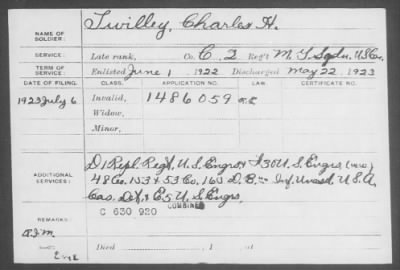 NAME OF SOLDIER: Twilley, Charles H.
SERVICE: Late rank, Co. C. 2 Reg't M. G. Sqdn. U.S. Cav.
TERM OF SERVICE: Enlisted June 1, 1922 Discharged May 22, 1923
DATE OF FILING. CLASS. APPLICATION NO. LAW. CERTIFICATE NO.
1923 July 6 Invalid, 1486059
Widow,
Minor,
D1 Repl. Regt, U.S. Engrs, & F30 U.S. Engrs,
ADDITIONAL SERVICES: 48 Co. 153 & 53 Co. 163 D.B. Inf. Unasd. U.S.A,
Cas. Det, & E5 U.S. Engrs,
COMBINED
C 630 920
REMARKS:
Died , 1